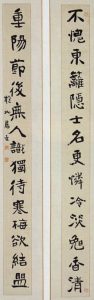 不愧東籬隱士名更憐冷淡勉香清
重陽節後無人識獨待寒梅欲結盟